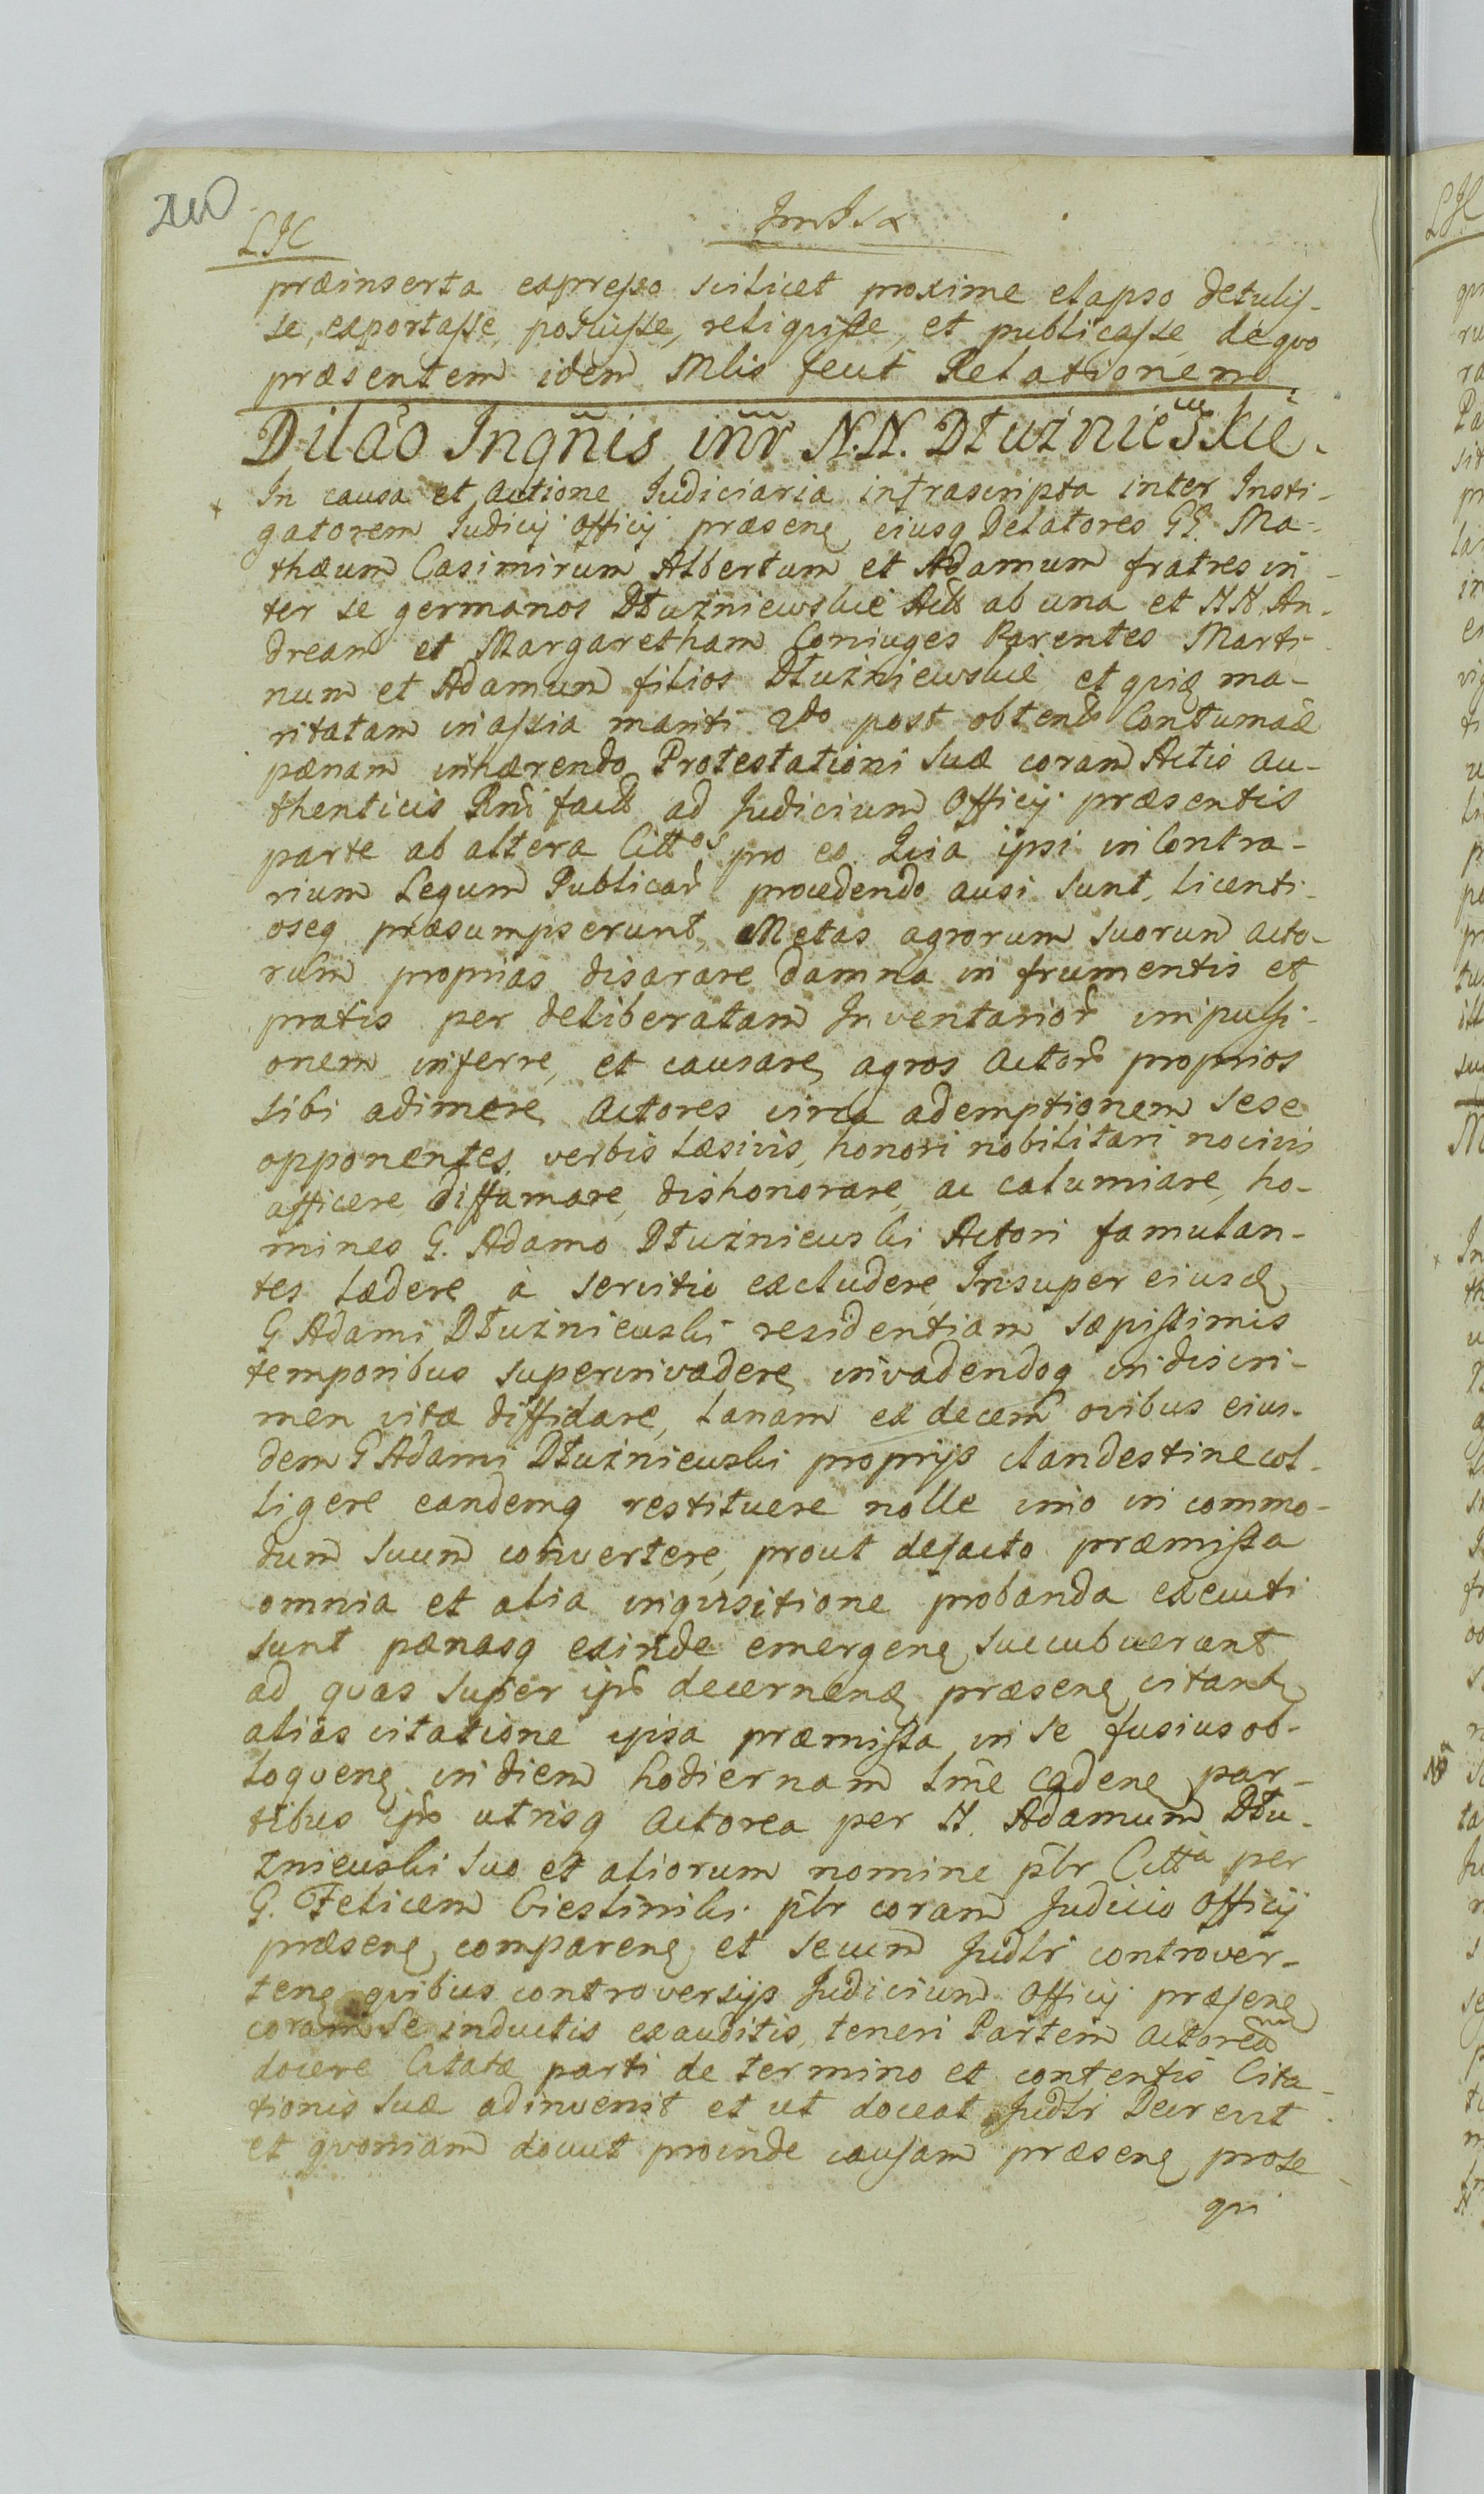 præinserta expresso scilicet proxime elapso detulis-
se, exportasse, posuisse, reliquisse, et publicasse, de quo
præsentem idem Mlis fecit Relationem
Dilâo Ingñis iñr N.N. Dłużniewskie.
In causa et actione Judiciaria infrascripta inter Insti-
gatorem Judicij Officij præsenꝫ eiusq Delatores GG. Ma-
thæum Casimirum Albertum et Adamum fratres in-
ter se germanos Dłużniewskie Act ab una et NN. An-
dream et Margaretham Coniuges Parentes Marti-
num et Adamum filios Dłużniewskie et ma-
ritatam in assia mariti 2do post obtent Contumaê
pænam inhærendo Protestationi suæ coram Actis au-
thenticis fact ad Judicium Officij præsentis
parte ab altera Cittos pro eo Quia ipsi in Contra-
rium Legum Publicar procedendo ausi sunt, licenti-
oseq præsumpserunt, Metas agrorum suorum acto-
rum proprias disarare damna in frumentis et
pratis per deliberatam Inventarior impulsi-
onem inferre, et causare, agros actor proprios
sibi adimere Actores circa ademptionem sese
opponentes verbis læsivis, honori nobilitari nocivis
afficere, diffamare, dishonorare, ac calumiare, ho-
mines G. Adamo Dłużniewski Actori famulan-
tes lædere à servitio excludere, Insuper eiusdꝫ
G Adami Dłużniewski residentiam sæpissimis
temporibus superinvadere, invadendoq in discri-
men vitæ diffidare, lanam ex decem ovibus eius-
dem G Adami Dłużniewski proprijs clandestine col-
ligere eandemq restituere nolle imo in commo-
dum suum convertere, prout defacto præmissa
omnia et alia inquisitione probanda executi
sunt pænasq exinde emergenꝫ succubuerunt
ad quas super decernendꝫ præsenꝫ citantꝫ
alias citatione ipsa præmissa in se fusius ob-
loquenꝫ in diem hodiernam tmê cadenꝫ par-
tibus utrisq actorea per N. Adamum Dłu-
żniewski suo et aliorum nomine plr Citta per
G. Felicem plr coram Judicio Officij
præsenꝫ comparenꝫ et secum Judlr controver-
tenꝫ quibus controversijs Judicium Officij præsenꝫ
coram se inductis exauditis, teneri Partem actoream
docere Citatæ parti de termino et contentis Cita-
tionis suæ adinvenit et ut doceat Judlr Decrevit
et quoniam docuit proinde causam præsenꝫ prose
qui